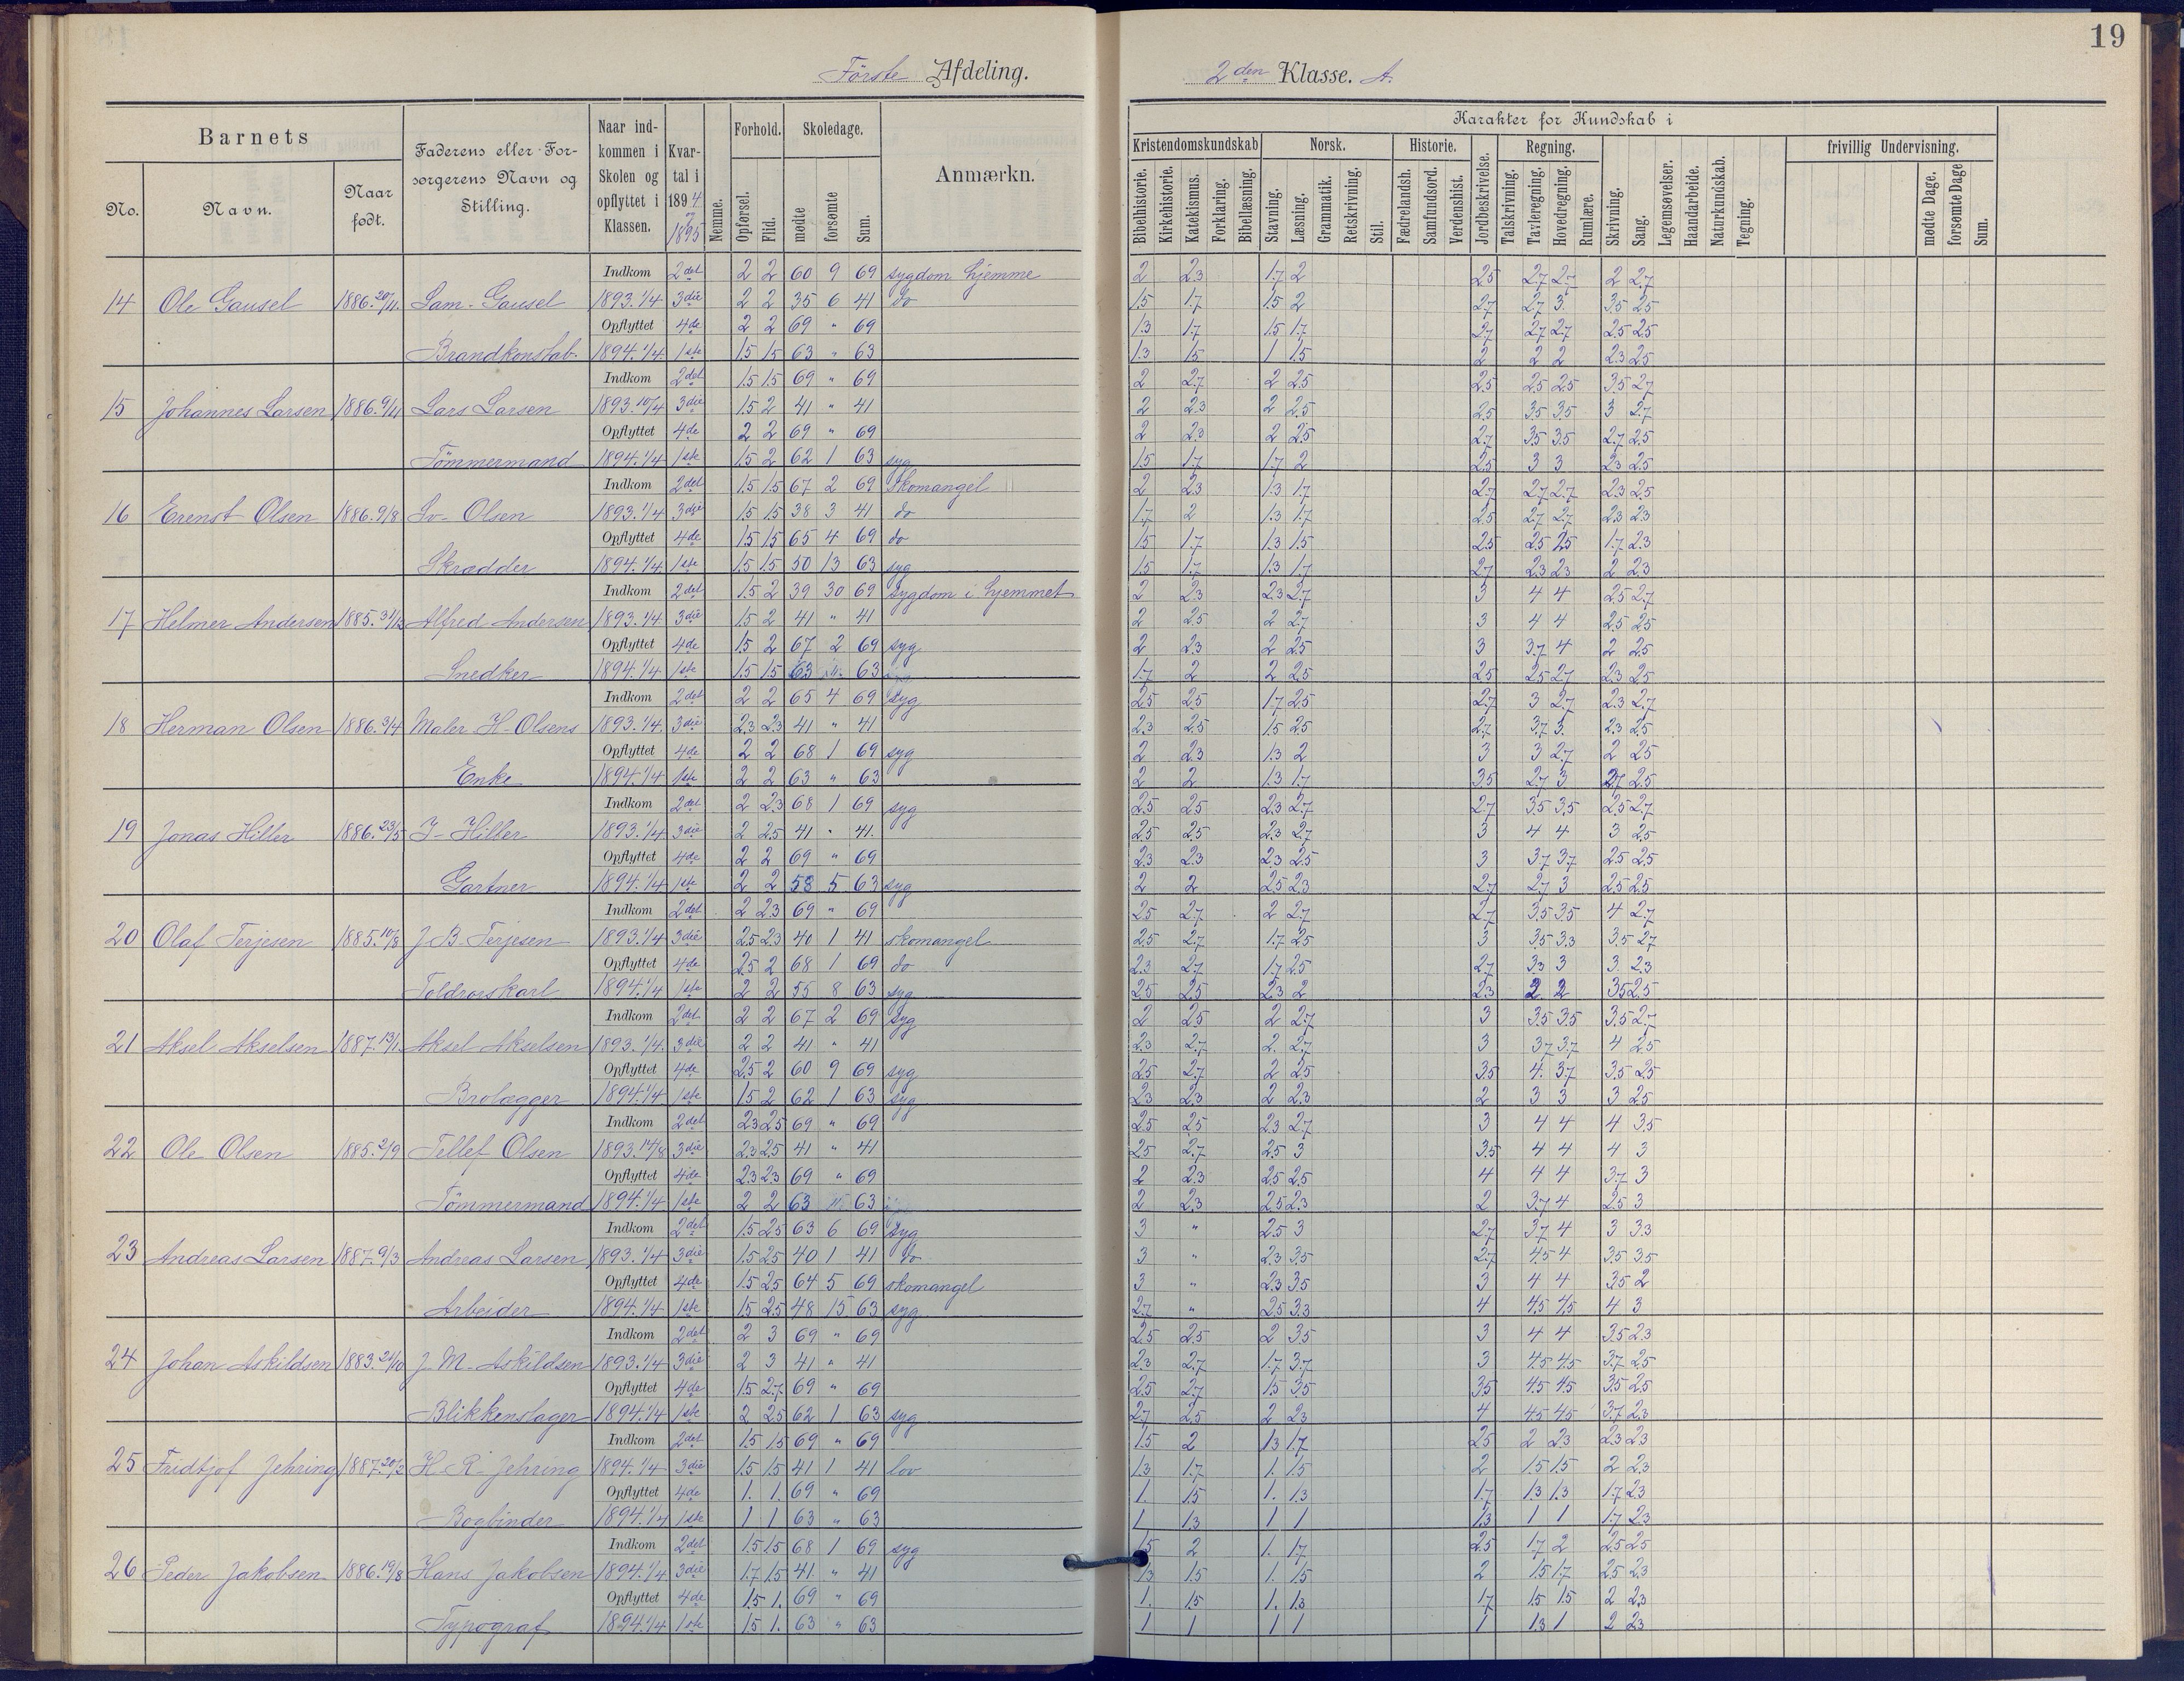 19
Förste Afdeling. 2den Klasse. A.
Barnets
No. Navn. Naar født.
Faderens eller Forsørgerens Navn og Stilling.
Naar indkommen i Skolen og opflyttet i Klassen.
Kvartal i 1894 1895
Nemme.
Forhold. Opførsel. Flid.
Skoledage. mødte forsømte Sum.
Anmærkn.
Karakter for Kundskab i
Kristendomskundskab Bibelhistorie. Kirkehistorie. Katekismus. Forklaring. Bibellæsning.
Norsk. Stavning. Læsning. Grammatik. Retskrivning. Stil.
Historie. Fædrelandsh. Samfundsord. Verdenshist.
Jordbeskrivelse.
Regning. Talskrivning. Tavleregning. Hovedregning. Rumlære.
Skrivning. Sang. Legemsøvelser. Haandarbeide. Naturkundskab. Tegning.
frivillig Undervisning. mødte Dage. forsømte Dage Sum.
Indkom 2det 2 2 60 9 69 sygdom hjemme 2 2.3 1.7 2 2.5 2.7 2.7 2 2.7
14 Ole Gausel 1886.20/11. Sam. Gausel 1893.1/4 3die 2 2 35 6 41 do 1.5 1.7 1.5 2 2.7 2.7 3 3.5 2.5
Opflyttet 4de 2 2 69 " 69 1.3 1.7 1.5 1.7 2.7 2.7 2.7 2.5 2.5
Brandkonstab. 1894.1/4 1ste 1.5 1.5 63 " 63 1.3 1.5 1 1.5 2 2 2 2.3 2.5
Indkom 2det 1.5 1.5 69 " 69 2 2.7 2 2.5 2.5 2.5 2.5 3.5 2.7
15 Johannes Larsen 1886.9/11 Lars Larsen 1893.10/4 3die 1.5 2 41 " 41 2 2.3 2 2.5 2.5 3.5 3.5 3 2.7
Opflyttet 4de 2 2 69 " 69 2 2.3 2 2.5 2.7 3.5 3.5 2.7 2.5
Tömmermand 1894.1/4 1ste 1.5 2 62 1 63 syg 1.5 1.7 1.7 2 2.5 3 3 2.3 2.5
Indkom 2det 1.5 1.5 67 2 69 skomangel 2 2.3 1.3 1.7 2.7 2.7 2.7 2.3 2.5
16 Erenst Olsen 1886.9/8 Olsen 1893.1/4 3die 1.5 1.5 38 3 41 do 1.7 2 1.3 1.7 2.5 2.7 2.7 2.3 2.3
Opflyttet 4de 1.5 1.5 65 4 69 do 1.5 1.7 1.3 1.5 2.5 2.5 2.5 1.7 2.3
Skrædder 1894.1/4 1ste 1.5 1.5 50 13 63 syg 1.5 1.7 1.3 1.7 2.7 2.3 2.3 2 2.3
Indkom 2det 1.5 2 39 30 69 sygdom i hjemmet 2 2.3 2.3 2.7 3 4 4 2.5 2.7
17 Helmer Andersen 1885.31/12 Alfred Andersen 1893.1/4 3die 1.5 2 41 " 41 2 2.5 2 2.7 3 4 4 2.5 2.5
Opflyttet 4de 1.5 2 67 2 69 syg 2 2.3 2 2.5 3 3.7 4 2 2.5
Snedker 1894.1/4 1ste 1.5 1.5 63 63 1.7 2 2 2.5 2.5 2.5 2.7 2.3 2.5
Indkom 2det 2 2 65 4 69 syg 2.5 2.5 1.7 2.5 2.7 3 2.7 2.3 2.7
18 Herman Olsen 1886.3/4 Maler H. Olsens 1893.1/4 3die 2.3 2.3 41 " 41 2.3 2.5 1.5 2.5 2.7 3.7 3. 2.3 2.5
Opflyttet 4de 2 2 68 1 69 syg 2 2.3 1.3 2 3 3 2.7 2 2.5
Enke 1894.1/4 1ste 2 2 63 " 63 2 2 1.3 1.7 3.5 2.7 3 2.7 2.5
Indkom 2det 2 2.3 68 1 69 syg 2.5 2.5 2.3 2.7 2.7 3.5 3.5 2.5 2.7
19 Jonas Hiller 1886.23/5 J. Hiller 1893.1/4 3die 2 2.5 41 " 41. 2.5 2.5 2.3 2.7 3 4 4 3 2.5
Opflyttet 4de 2 2 69 " 69 2.3 2.3 2.3 2.5 3 3.7 3.7 2.5 2.5
Gartner 1894.1/4 1ste 2 2 58 5 63 syg 2 2 2.5 2.3 2.7 2.7 3 2.5 2.5
Indkom 2det 2 2.3 69 " 69 2.5 2.7 2 2.7 2.7 3.5 3.5 4 2.7
20 Olaf Terjesen 1885.10/8 J. B. Terjesen 1893.1/4 3die 2.5 2.3 40 1 41 skomangel 2.5 2.7 1.7 2.5 3 3.5 3.3 3.5 2.7
Opflyttet 4de 2.5 2 68 1 69 do 2.3 2.7 1.7 2.5 2.7 3.3 3 3 2.3
Toldrorskarl 1894.1/4 1ste 2 2 55 8 63 syg 2.5 2.5 2.3 2 2.3 2 2 3.5 2.5
Indkom 2det 2 2 67 2 69 syg 2 2.5 2 2.7 3 3.5 3.5 3.5 2.7
21 Aksel Akselsen 1887.13/1. Aksel Akselsen 1893.1/4. 3die 2 2 41 " 41 2.3 2.7 2. 2.7 3 3.7 3.7 4 2.5
Opflyttet 4de 2.5 2 60 9 69 syg 2.5 2.7 2 2.5 3.5 4. 3.7 3.5 2.5
Brolægger 1894.1/4 1ste 1.5 2 62 1 63 syg 2.3 2.3 2 2.3 2 3 3 3 2.5
Indkom 2det 2.3 2.5 69 " 69 2.5 2.5 2.3 2.7 3 4 4 4 3.5
22 Ole Olsen 1885.2/9 Tellef Olsen 1893.14/8 3die 2.3 2.5 41 " 41 2.5 2.7 2.5 3 3.5 4 4 4 3
Opflyttet 4de 2.3 2.3 69 " 69 2 2.3 2.5 2.5 4 4 4 3.7 3
Tömmermand 1894.1/4 1ste 2 2 63 63 2 2.3 2.5 2.3 2 3.7 4 2.5 3
Indkom 2det 1.5 2.5 63 6 69 syg 3 " 2.5 3 2.7 3.7 4 3 3.3
23 Andreas Larsen 1887.9/3 Andreas Larsen 1893.1/4 3die 1.5 2.5 40 1 41 do 3 " 2.3 3.5 2.7 4.5 4 3.5 3.5
Opflyttet 4de 1.5 2.5 64 5 69 skomangel 3 " 2.3 3.5 3 4 4 3.5 2
Arbeider 1894.1/4 1ste 1.5 2.5 48 15 63 syg 2.7 " 2.5 3.3 4 4.5 4.5 4 3
Indkom 2det 2 3 69 " 69 2.5 2.5 2 3.5 3 4 4 3.5 2.3
24 Johan Askildsen 1883.24/10 J. M. Askildsen 1893.1/4 3die 2 3 41 " 41 2.3 2.7 1.7 3.7 3 4.5 4.5 3.7 2.5
Opflyttet 4de 1.5 2.7 69 " 69 2.5 2.7 1.5 3.5 3.5 4.5 4.5 3.5 2.5
Blikkenslager 1894.1/4 1ste 2 2.5 62 1 63 syg 2.7 2.5 2 2.3 4 4.5 4.5 3.7 2.3
Indkom 2det 1.5 1.5 69 " 69 1.5 2 1.3 1.7 2.5 2 2.3 2.3 2.3
25 Fridtjof Jehring 1887.20/2 H. R. Jehring 1894.1/4 3die 1.5 1.5 41 1 41 lov 1.3 1.7 1. 1.5 2 1.5 1.5 2 2.3
Opflyttet 4de 1. 1. 69 " 69 1. 1.5 1. 1.3 1.7 1.3 1.3 1.7 2.3
Bogbinder 1894.1/4 1ste 1 1 63 " 63 1 1.3 1 1 1.3 1 1 1.7 2.3
Indkom 2det 1.5 1.5 68 1 69 syg 1.5 2 1. 1.7 2.5 1.7 2 2.5 2.5
26 Peder Jakobsen 1886.19/8 Hans Jakobsen 1894.1/4 3die 1.7 1.5 41. " 41 1.3 1.5 1. 1.5 2 1.5 1.7 2.5 2.3
Opflyttet 4de 1.5 1. 69 " 69 1. 1.5 1. 1.3 1.7 1.5 1.5 2 2.3
Typograf 1894.1/4 1ste 1.5 1. 63 " 63 1 1 1 1 1 1.3 1 2 2.3